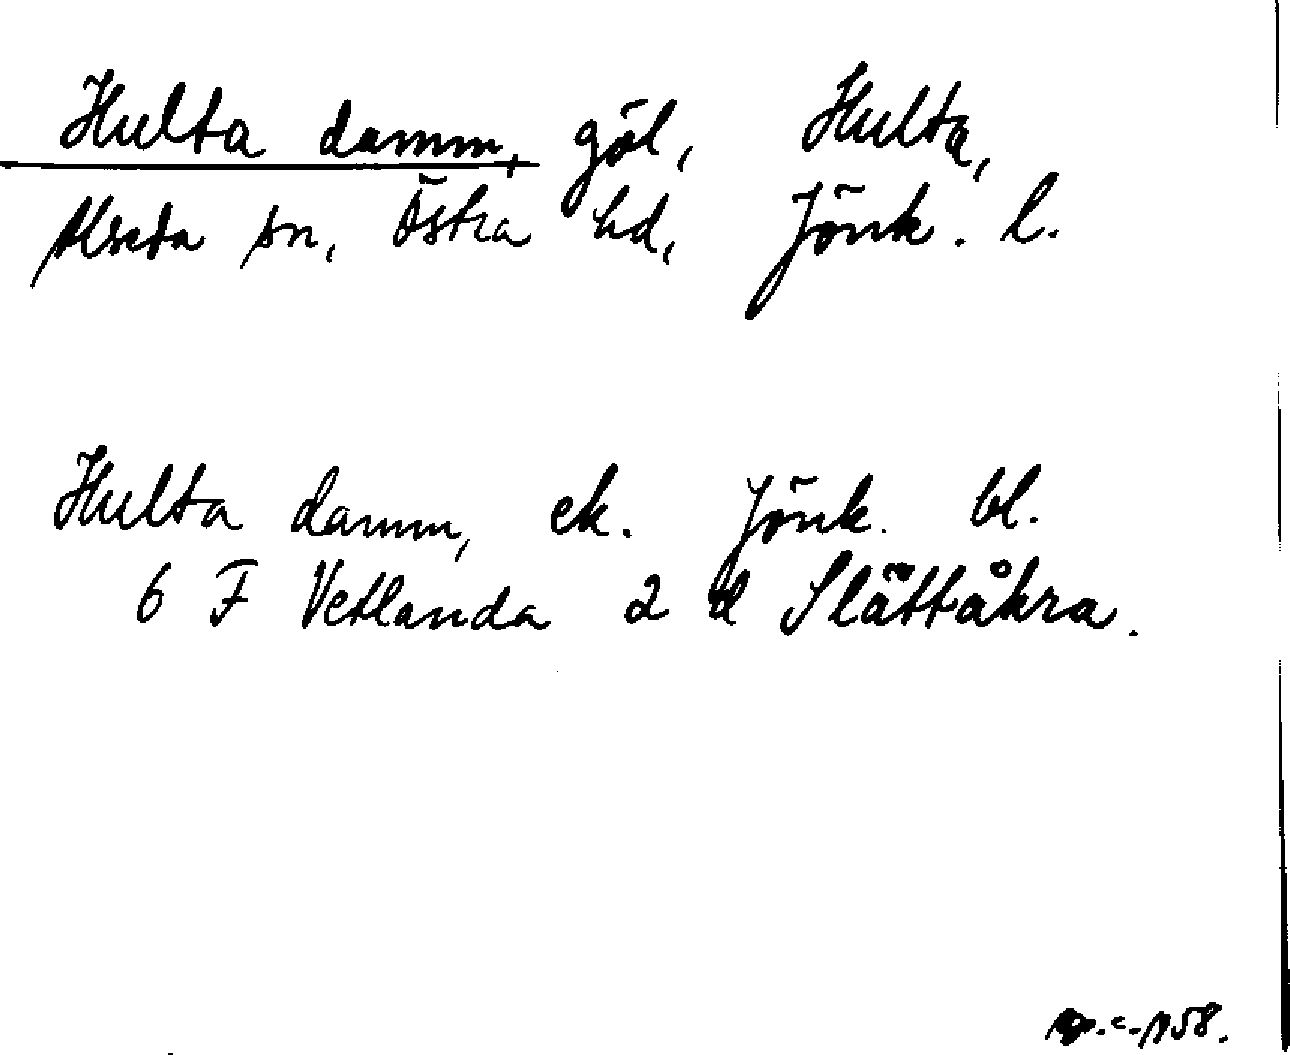 Hulta damm, göl, Hulta,
Alseda sn, Östra hd, Jönk. l.
Hulta damm, ek. Jönk. bl.
6 F Vetlanda 2 d Slättåkra.
58.